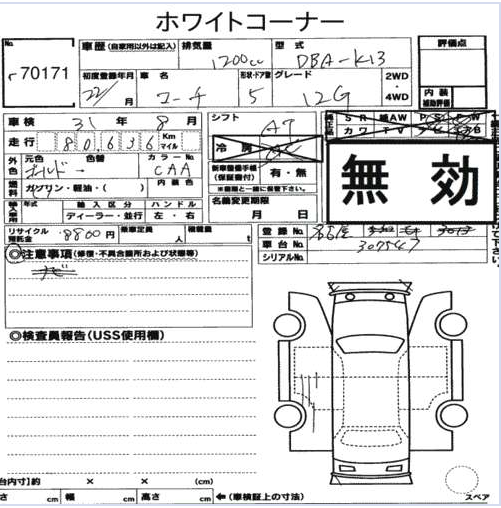 ホワイトコーナー
No.
70171
車歴 (自家用以外は記入)
排気量
1200cc
型式
DBA-K13
評価点
初度登録年月
22/ 月
車名
マーチ
形状・ドア数
5
グレード
12G
2WD
・
4WD
内装
補助評価
車検
31 年 8 月
シフト
AT
走行
80,636
Km
マイル
冷房
AC
SR
純AW
PS
PW
カワ
TV
ナビ
無効
外色
元色
ゴールド
色替
カラーNo.
CAA
新車整備手帳
(保証書付)
有・無
※書類と一緒に保管下さい。
燃料
ガソリン・軽油・( )
内装色
名義変更期限
月 日
輸入車用
年式
輸入区分
ディーラー・並行
ハンドル
左・右
リサイクル
預託金
8800円
乗車定員
人
積載量
t
登録No.
車台No.
307547
シリアルNo.
◎注意事項(修復・不具合箇所および状態等)
ナビ
◎検査員報告(USS使用欄)
台内寸)約 × × (cm)
さ cm 幅 cm 高さ cm ←(車検証上の寸法)
スペア